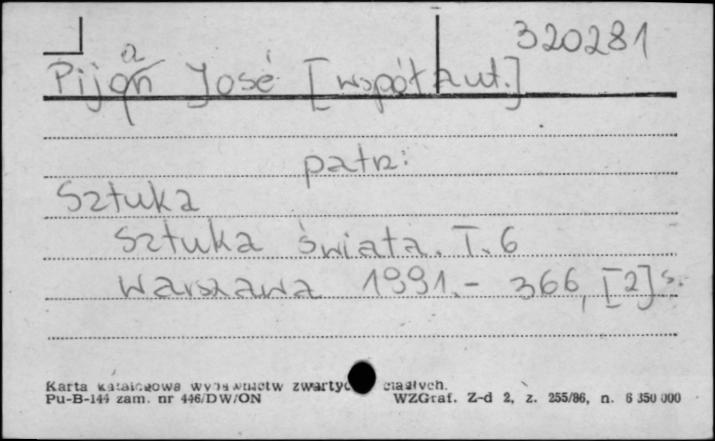 320281
Pijan José [współaut.]
patrz:
Sztuka
Sztuka świata. T. 6
Warszawa 1991.- 366, [2] s.
Karta katalogowa wydawnictw zwartych ciągłych.
Pu-B-144 zam. nr 446/DW/ON WZGraf. Z-d 2, z. 255/86, n. 6 350 000